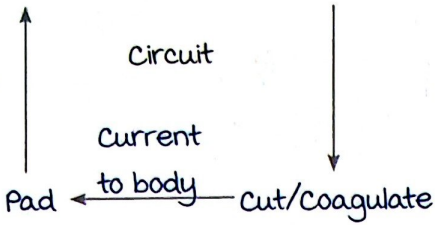 Circuit
Current
to body
Pad
Cut/Coagulate